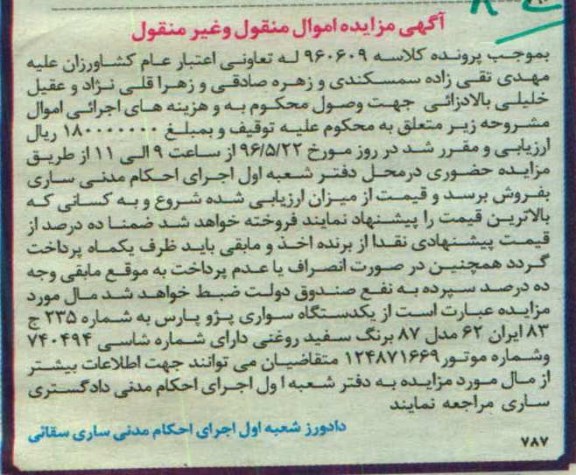 آگهی مزایده اموال منقول وغیر منقول
بموجب پرونده کلاسه ۹۶۰۶۰۹ له تعاونی اعتبار عام کشاورزان علیه
مهدی تقی زاده سمسکندی و زهره صادقی و زهرا قلی نژاد و عقیل
خلیلی بالادزائی جهت وصول محکوم به و هزینه های اجرائی اموال
مشروحه زیر متعلق به محکوم علیه توقیف و بمبلغ ۱۸۰۰۰۰۰۰۰ ریال
ارزیابی و مقرر شد در روز مورخ ۹۶/۵/۲۲ از ساعت ۹ الی ۱۱ از طریق
مزایده حضوری درمحل دفتر شعبه اول اجرای احکام مدنی ساری
بفروش برسد و قیمت از میزان ارزیابی شده شروع و به کسانی که
بالاترین قیمت را پیشنهاد نمایند فروخته خواهد شد ضمنا ده درصد از
قیمت پیشنهادی نقدا از برنده اخذ و مابقی باید ظرف یکماه پرداخت
گردد همچنین در صورت انصراف یا عدم پرداخت به موقع مابقی وجه
ده درصد سپرده به نفع صندوق دولت ضبط خواهد شد مال مورد
مزایده عبارت است از یکدستگاه سواری پژو پارس به شماره ۲۳۵ ج
۸۳ ایران ۶۲ مدل ۸۷ برنگ سفید روغنی دارای شماره شاسی ۷۴۰۴۹۴
وشماره موتور ۱۲۴۸۷۱۶۶۹ متقاضیان می توانند جهت اطلاعات بیشتر
از مال مورد مزایده به دفتر شعبه ا ول اجرای احکام مدنی دادگستری
ساری مراجعه نمایند
دادورز شعبه اول اجرای احکام مدنی ساری سقائی
۷۸۷